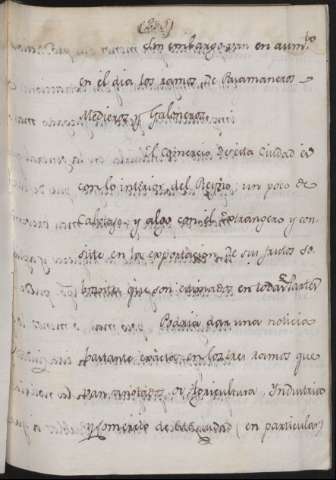 Sin embargo van en aumto
en el dia los ramos de Pasamaneros
Medieros y Galoneros
El Comercio de esta Ciudad es
con lo interior del Reyno, un poco de
y algo con el Estrangero y con-
siste en la exportacion de sus frutos so-
brantes que son en todas partes
Podria dar una noticia
bastante exacta en los tres ramos que
van anotados de Agricultura, Industria
y Comercio de esta Ciudad (en particular)